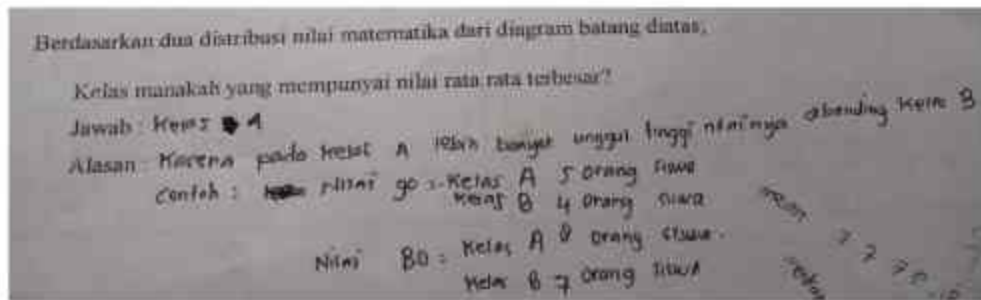 Berdasarkan dua distribusi nilai matematika dari diagram batang diatas,
Kelas manakah yang mempunyai nilai rata rata terbesar?
Jawab : Kelas A
Alasan : Karena pada kelas A lebih banyak unggul tinggi nilainya dbanding kelas B
Contoh : Nilai 90 : - Kelas A 5 orang siswa
Kelas B 4 orang siswa
Nilai 80 : Kelas A 8 orang siswa.
Kelas B 7 orang siswa